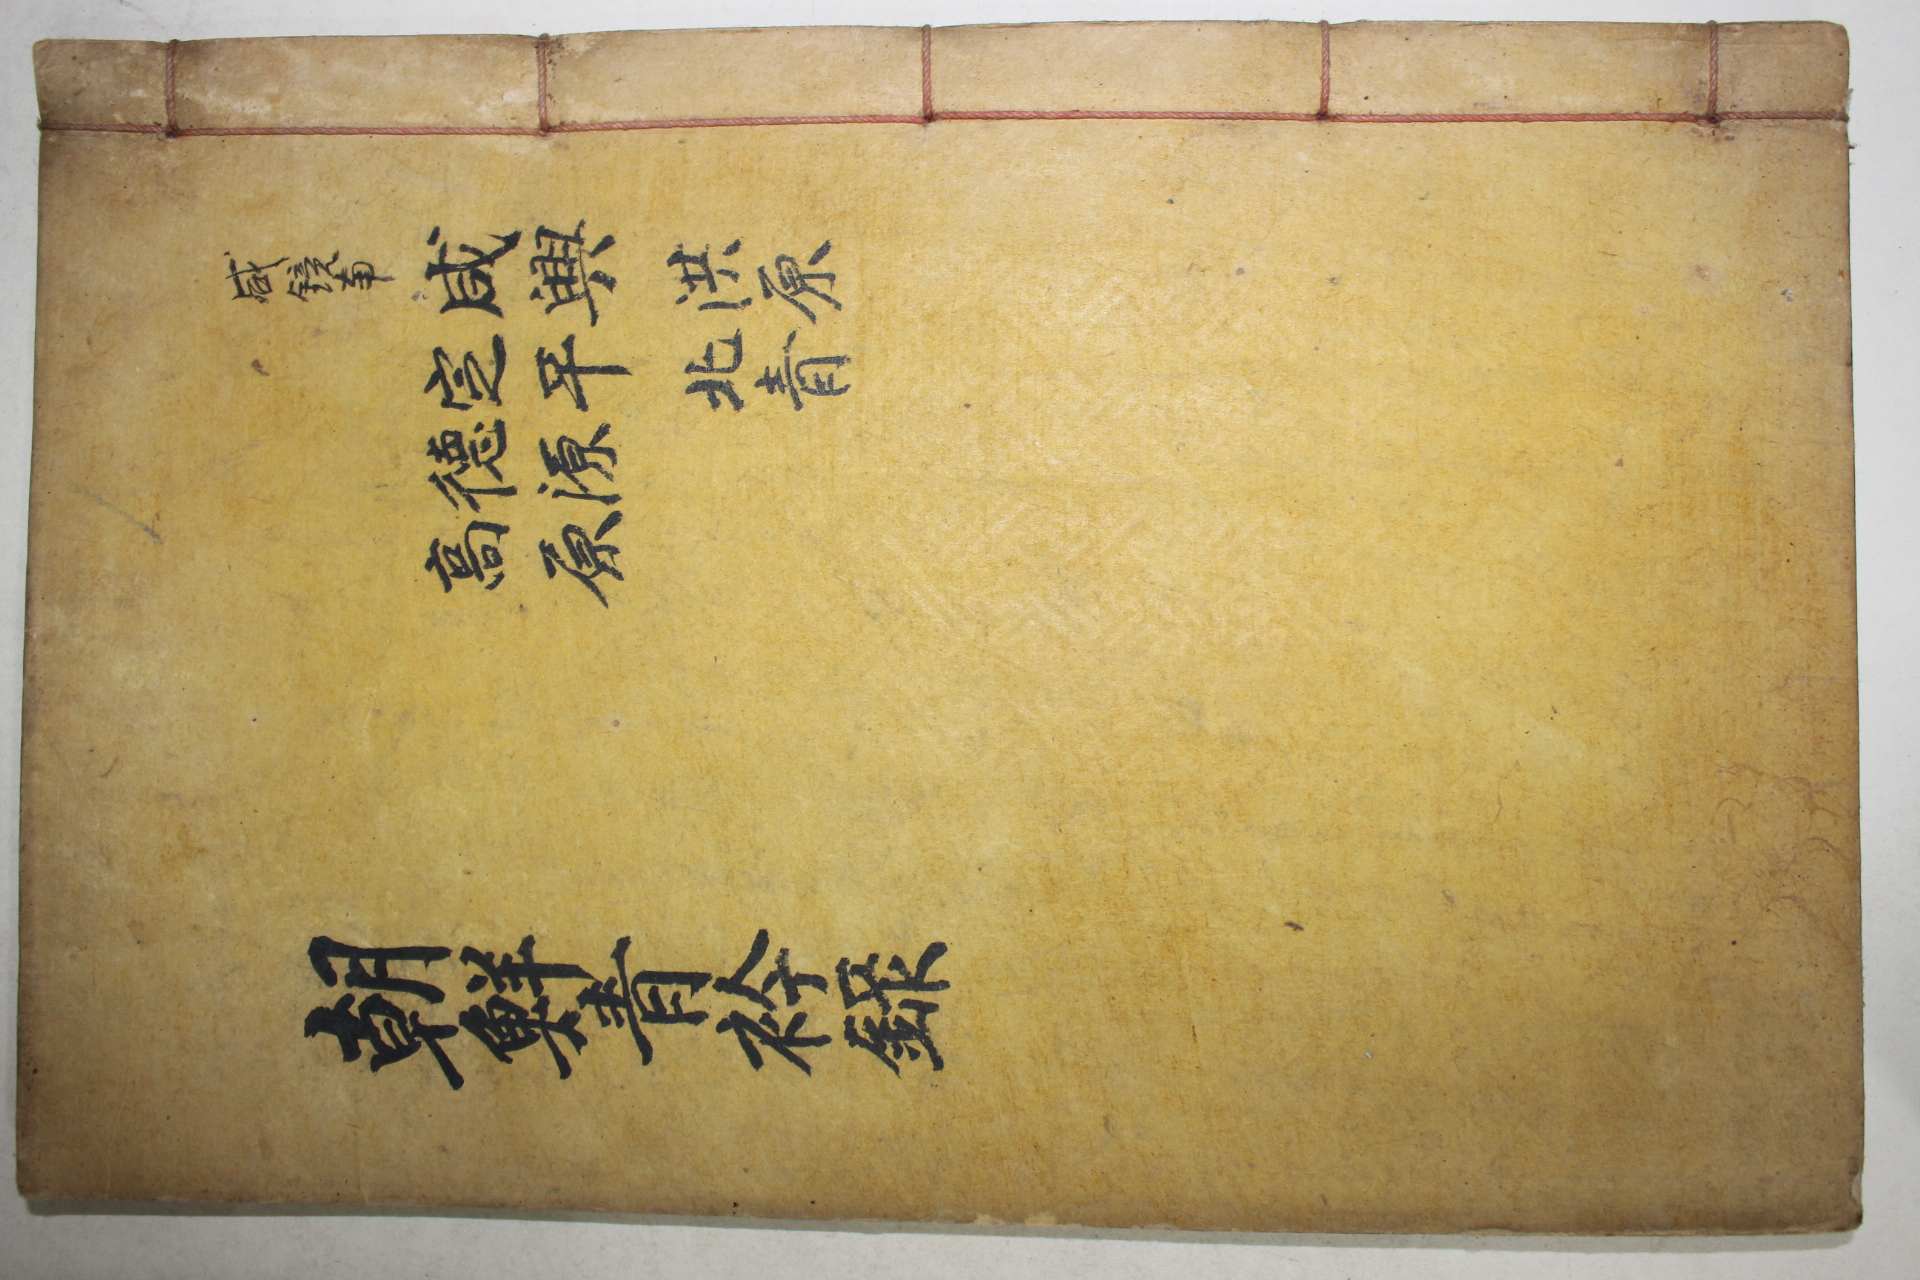 咸鏡南
咸興
定平
德源
高原
洪原
北青
朝鮮青衿錄